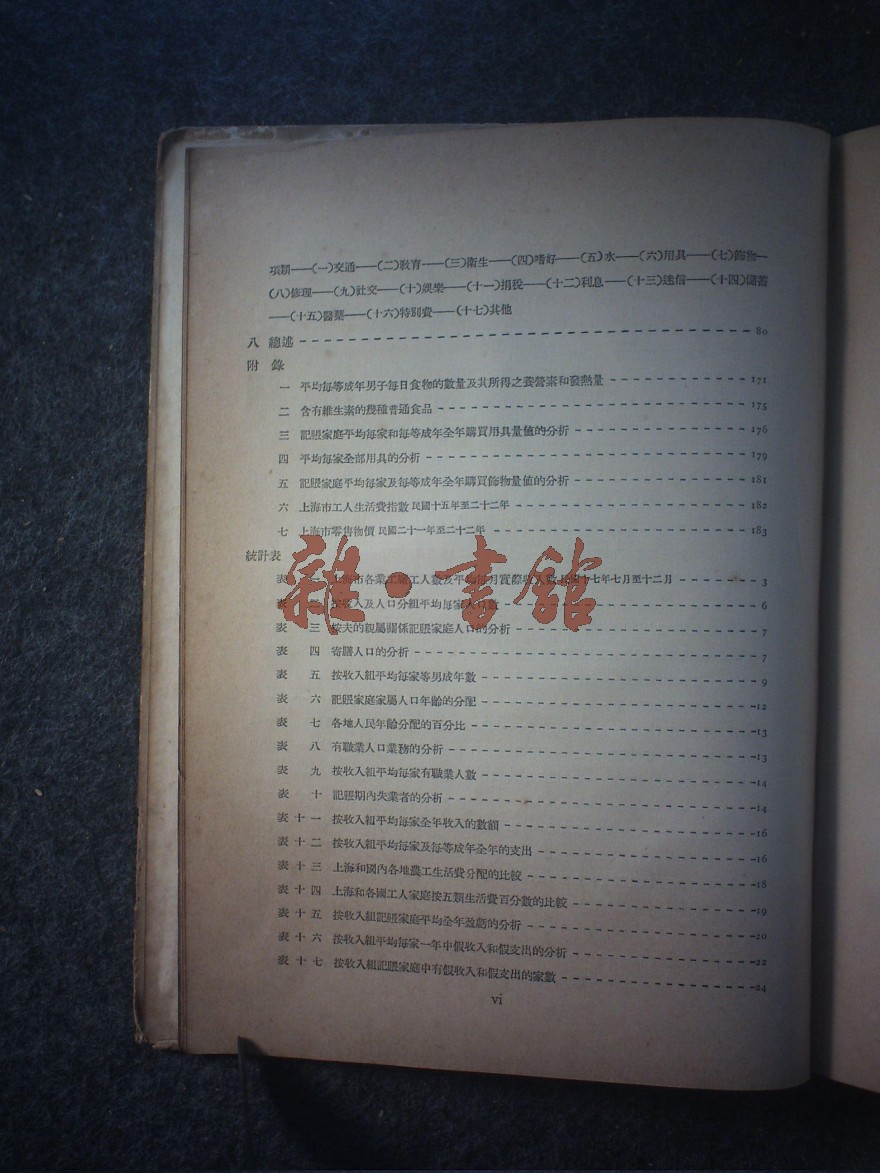 項類——(一)交通——(二)敎育——(三)衛生——(四)嗜好——(五)水——(六)用具——(七)飾物—
(八)修理——(九)社交——(十)娛樂——(十一)捐稅——(十二)利息——(十三)迷信——(十四)儲蓄
——(十五)醫藥——(十六)特別費——(十七)其他
八 總述 80
附 錄
一 平均每等成年男子每日食物的數量及其所得之養營素和發熱量 171
二 含有維生素的幾種普通食品 175
三 記賬家庭平均每家和每等成年全年購買用具量值的分析 176
四 平均每家全部用具的分析 179
五 記賬家庭平均每家及每等成年全年購買飾物量值的分析 181
六 上海市工人生活費指數 民國十五年至二十二年 182
七 上海市零售物價 民國二十一年至二十二年 183
統計表
表 一 上海市各業工廠工人數及平均每月實際收入數 民國十七年七月至十二月 3
表 二 按收入及人口分組平均每家人口數 6
表 三 按夫的親屬關係記賬家庭人口的分析 7
表 四 寄膳人口的分析 7
表 五 按收入組平均每家等男成年數 9
表 六 記賬家庭家屬人口年齡的分配 12
表 七 各地人民年齡分配的百分比 13
表 八 有職業人口業務的分析 13
表 九 按收入組平均每家有職業人數 14
表 十 記賬期內失業者的分析 14
表 十一 按收入組平均每家全年收入的數額 16
表 十二 按收入組平均每家及每等成年全年的支出 16
表 十三 上海和國內各地農工生活費分配的比較 18
表 十四 上海和各國工人家庭按五類生活費百分數的比較 19
表 十五 按收入組記賬家庭平均全年盈虧的分析 20
表 十六 按收入組平均每家一年中假收入和假支出的分析 22
表 十七 按收入組記賬家庭中有假收入和假支出的家數 24
vi
雜·書館